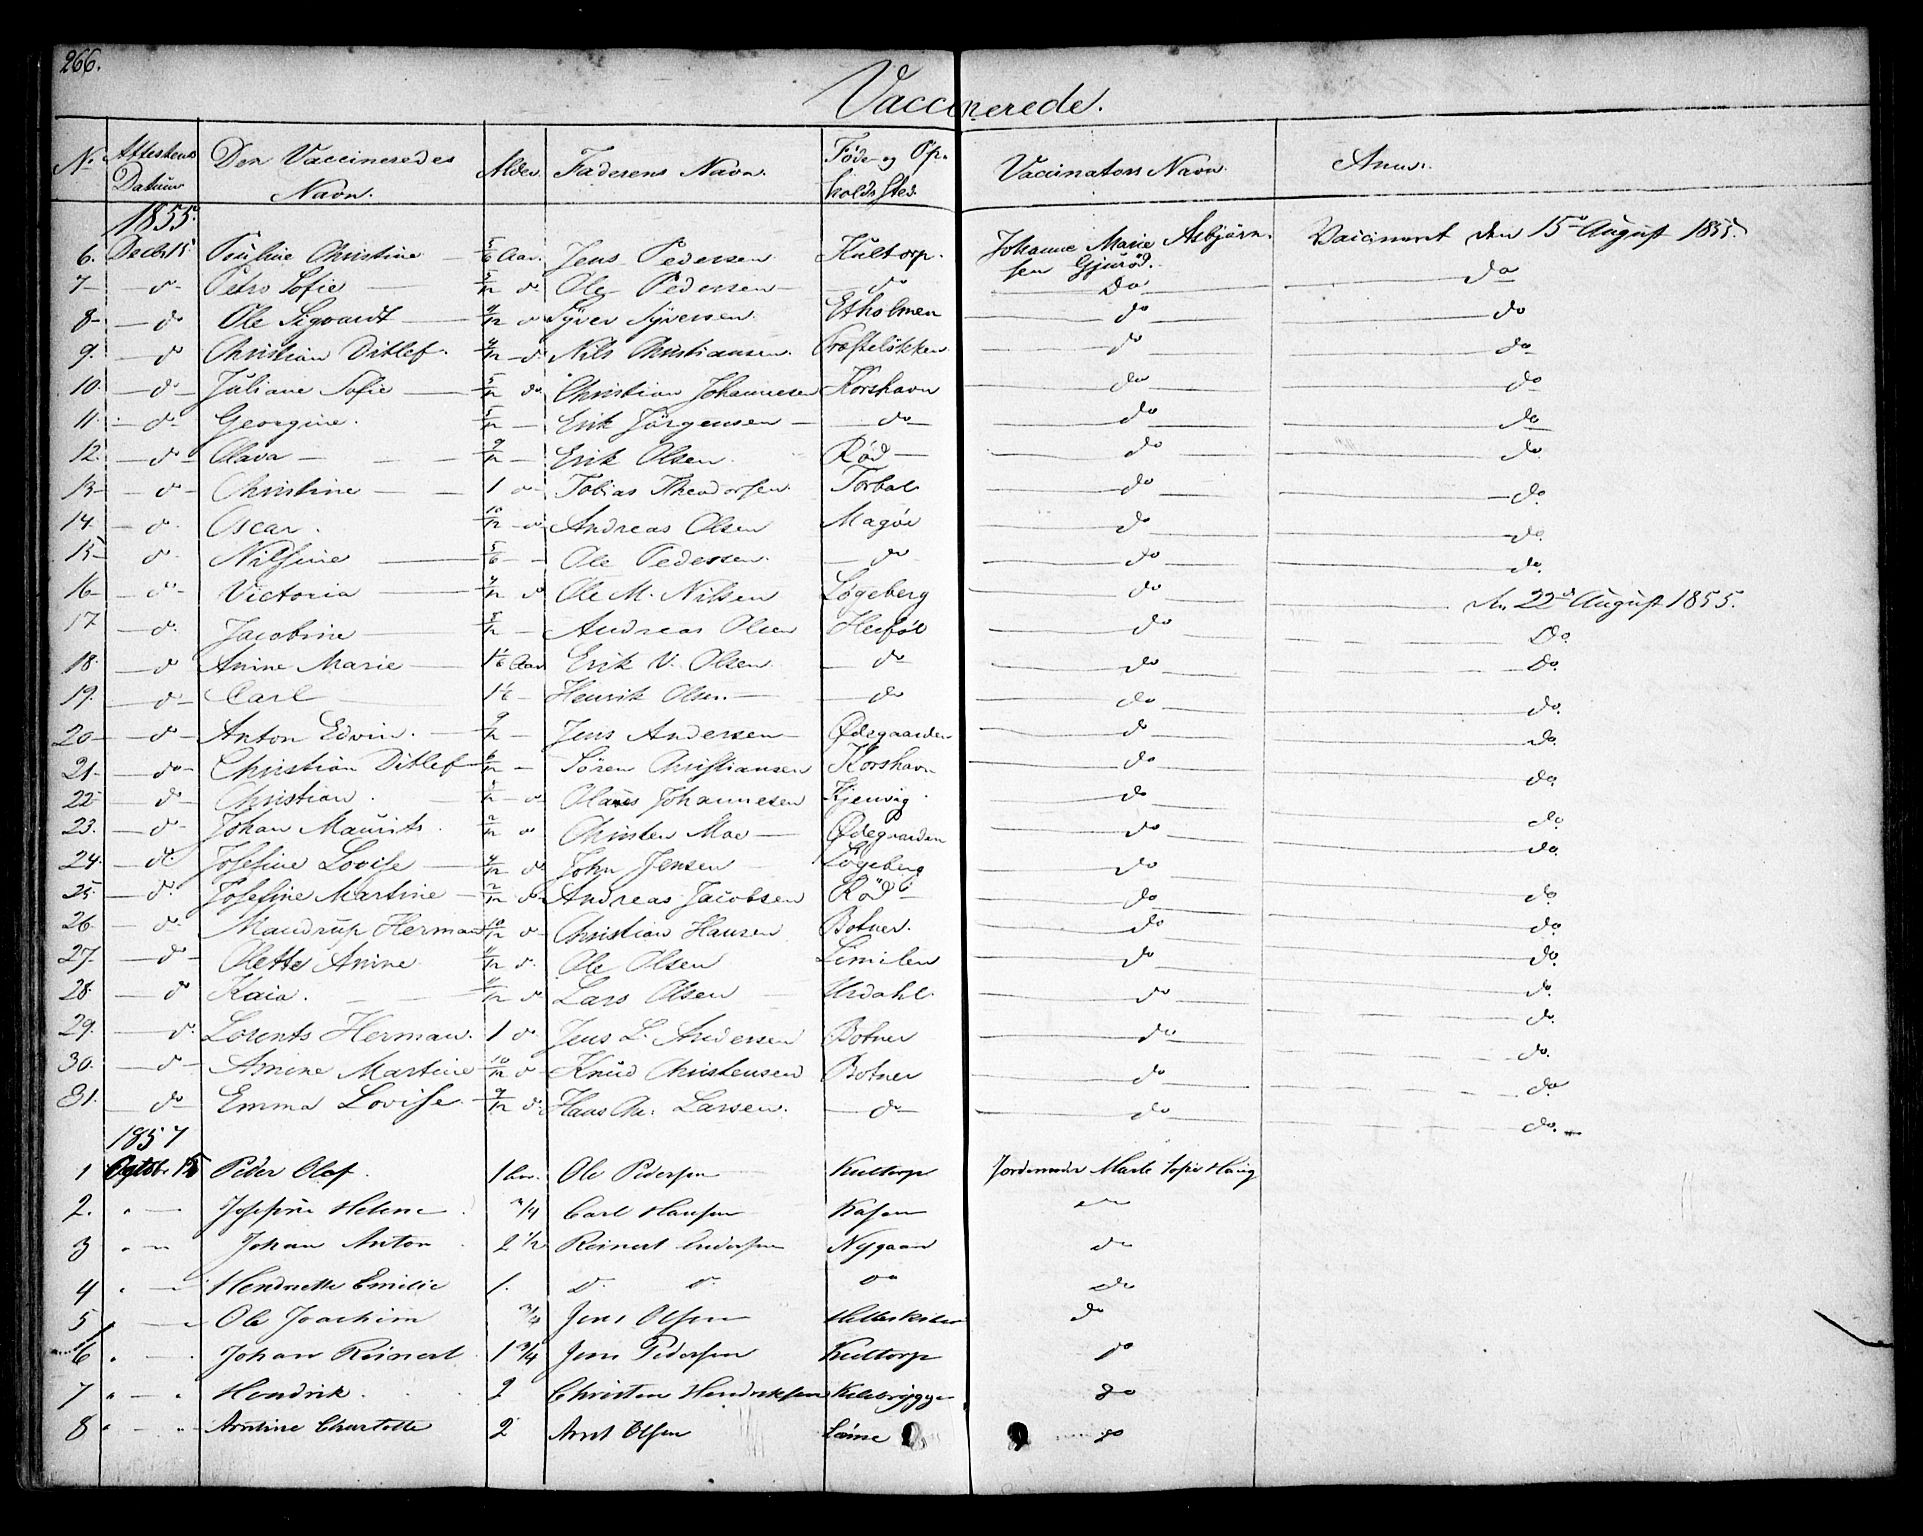 266.
Vaccinerede.
No Attestens Datum Den Vaccineredes Navn. Alder. Faderens Navn. Føde- og Opholds Sted. Vaccinators Navn. Anm.
1855.
6. Decbr 15 Pouline Christine 5/6 Aar. Jens Pedersen Kultorp. Johanne Marie Asbjørnsen Gjurød. Vaccineret den 15de August 1855.
7 — do Petro Sofie 5/12 do Ole Pedersen do Do do
8 — do Ole Sigvardt /12 do Syver Syversen Etholmen do do
9. — do Christian Ditlef. /12 do Nils Christiansen. Præsteløkken do do
10. — do Juliane Sofie 5/12 do Christian Johannesen Korshavn do do
11. — do Georgine. 5/12 — Erik Jörgensen — do do do
12. — do Olava 9/12 — Erik Olsen. Rød do do
13 — do Christine 1 do Tobias Theodorsen Torbal do do
14. — do Oscar. 10/12 do Andreas Olsen Magøe do do
15 do Nilsine 5/6 — Ole Pedersen. do do do
16 — do Victoria /12 do Ole M. Nilsen Løgeberg do den 22de August 1855.
17 — do Jacobine 5/12 — Andreas Olsen Herføl do Do.
18. — do Anine Marie 1 1/6 Aar Erik V. Olsen do do do.
19. — do Carl 1 1/6 — Henrik Olsen. do do do.
20 — do Anton Edvin. 9/12 — Jens Andersen Ødegaarden do do.
21. — do Christian Ditlef /12 — Sören Christiansen Korshavn do do.
22 — do Christian. /12 do Olaves Johannesen Kjenvig. do do.
23. — do Johan Maurits. /12 do Christen Moe Ødegaarden do do.
24. — do Josefine Lovise /12 do John Jensen Løgeberg do do.
25. — do Josefine Martine /12 do Andreas Jacobsen Röd do do.
26 — do Mandrup Herman 10/12 do Christian Hansen Botner. do do.
27. — do Olette Anine /12 do. Ole Olsen Limilen do do.
28. — do Kaia. /12 do Lars Olsen Urdahl. do do.
29. — do. Lorents Herman. 1 do Jens L. Andersen Botner do do.
30. — do Amine Martine 10/12 do Knud Christensen Botner do do.
31. — do Emma Lovise. 9/12 do. Hans Chr. Larsen. do do do.
1857
1 Octobr 15 Peder Olaf. 1 Aar. Ole Pedersen Kultorp Jordemoder Marte Sofie Haug
2. " — Josefine Helene 3/4 Carl Hansen Kasen do
3 " — Johan Anton 2 1/2 Reinert Andersen Nygaard do
4 " — Hendriette Emilie 1. do do do do
5 " — Ole Joachim 3/4 Jens Olsen do
6 " — Johan Reinert 1 3/4 Jens Pedersen Kultorp do
7 " — " Hendrik 2 Christen Hendriksen Kilebryggen do
8 " — " Arntine Charlotte 2 Arnt Olsen Läme do